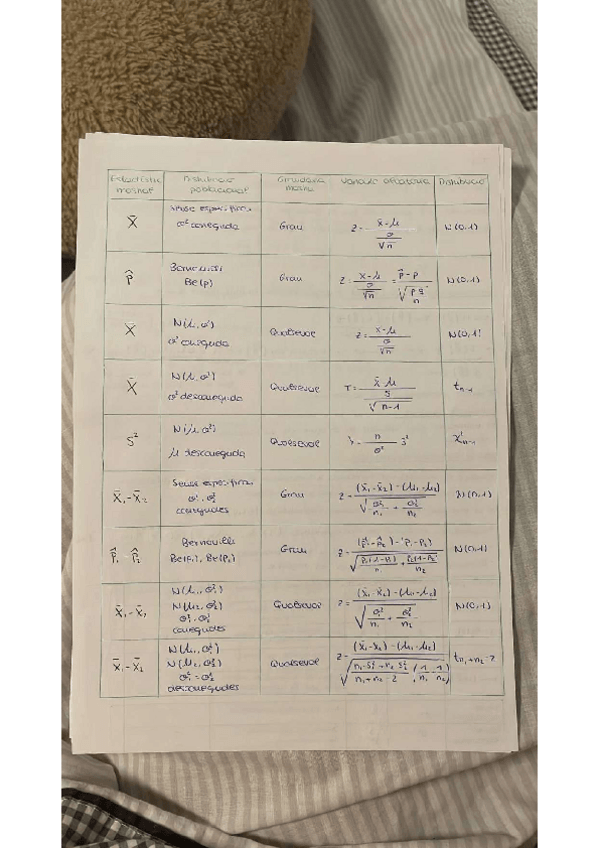 Estadístic mostral | Distribució poblacional | Grandària mostra | Variable aleatòria | Distribució
X̄ | Sense especificar, σ² coneguda | Gran | Z = (x̄ - μ) / (σ/√n) | N(0,1)
p̂ | Bernoulli Be(p) | Gran | Z = (x - μ) / (σ/√n) = (p̂ - p) / √(pq/n) | N(0,1)
X̄ | N(μ, σ²) σ² coneguda | Qualsevol | Z = (x - μ) / (σ/√n) | N(0,1)
X̄ | N(μ, σ²) σ² desconeguda | Qualsevol | T = (x̄ - μ) / (S/√(n-1)) | tₙ₋₁
S² | N(μ, σ²) μ desconeguda | Qualsevol | n/σ² S² | χ²ₙ₋₁
X̄₁ - X̄₂ | Sense especificar, σ₁², σ₂² conegudes | Gran | Z = ((x̄₁ - x̄₂) - (μ₁ - μ₂)) / √(σ₁²/n₁ + σ₂²/n₂) | N(0,1)
p̂₁ - p̂₂ | Bernoulli Be(p₁), Be(p₂) | Gran | Z = ((p̂₁ - p̂₂) - (p₁ - p₂)) / √(p₁(1-p₁)/n₁ + p₂(1-p₂)/n₂) | N(0,1)
X̄₁ - X̄₂ | N(μ₁, σ₁²) N(μ₂, σ₂²) σ₁², σ₂² conegudes | Qualsevol | Z = ((x̄₁ - x̄₂) - (μ₁ - μ₂)) / √(σ₁²/n₁ + σ₂²/n₂) | N(0,1)
X̄₁ - X̄₂ | N(μ₁, σ₁²) N(μ₂, σ₂²) σ₁² = σ₂² desconegudes | Qualsevol | Z = ((x̄₁ - x̄₂) - (μ₁ - μ₂)) / √((n₁S₁² + n₂S₂²)/(n₁ + n₂ - 2) (1/n₁ + 1/n₂)) | t n₁ + n₂ - 2